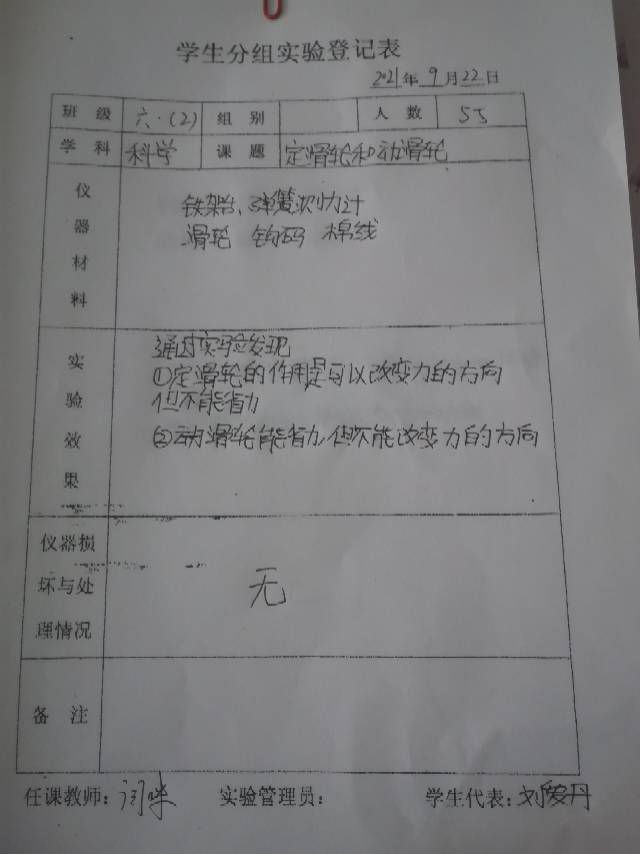 学生分组实验登记表
2021年9月22日
班级 六.(2) 组别 人数 55
学科 科学 课题 定滑轮和动滑轮
仪器材料
铁架台、弹簧测力计
滑轮 钩码 棉线
实验效果
通过实验发现
①定滑轮的作用是可以改变力的方向
但不能省力
②动滑轮能省力,但不能改变力的方向
仪器损坏与处理情况
无
备注
任课教师: 实验管理员: 学生代表:刘爱丹